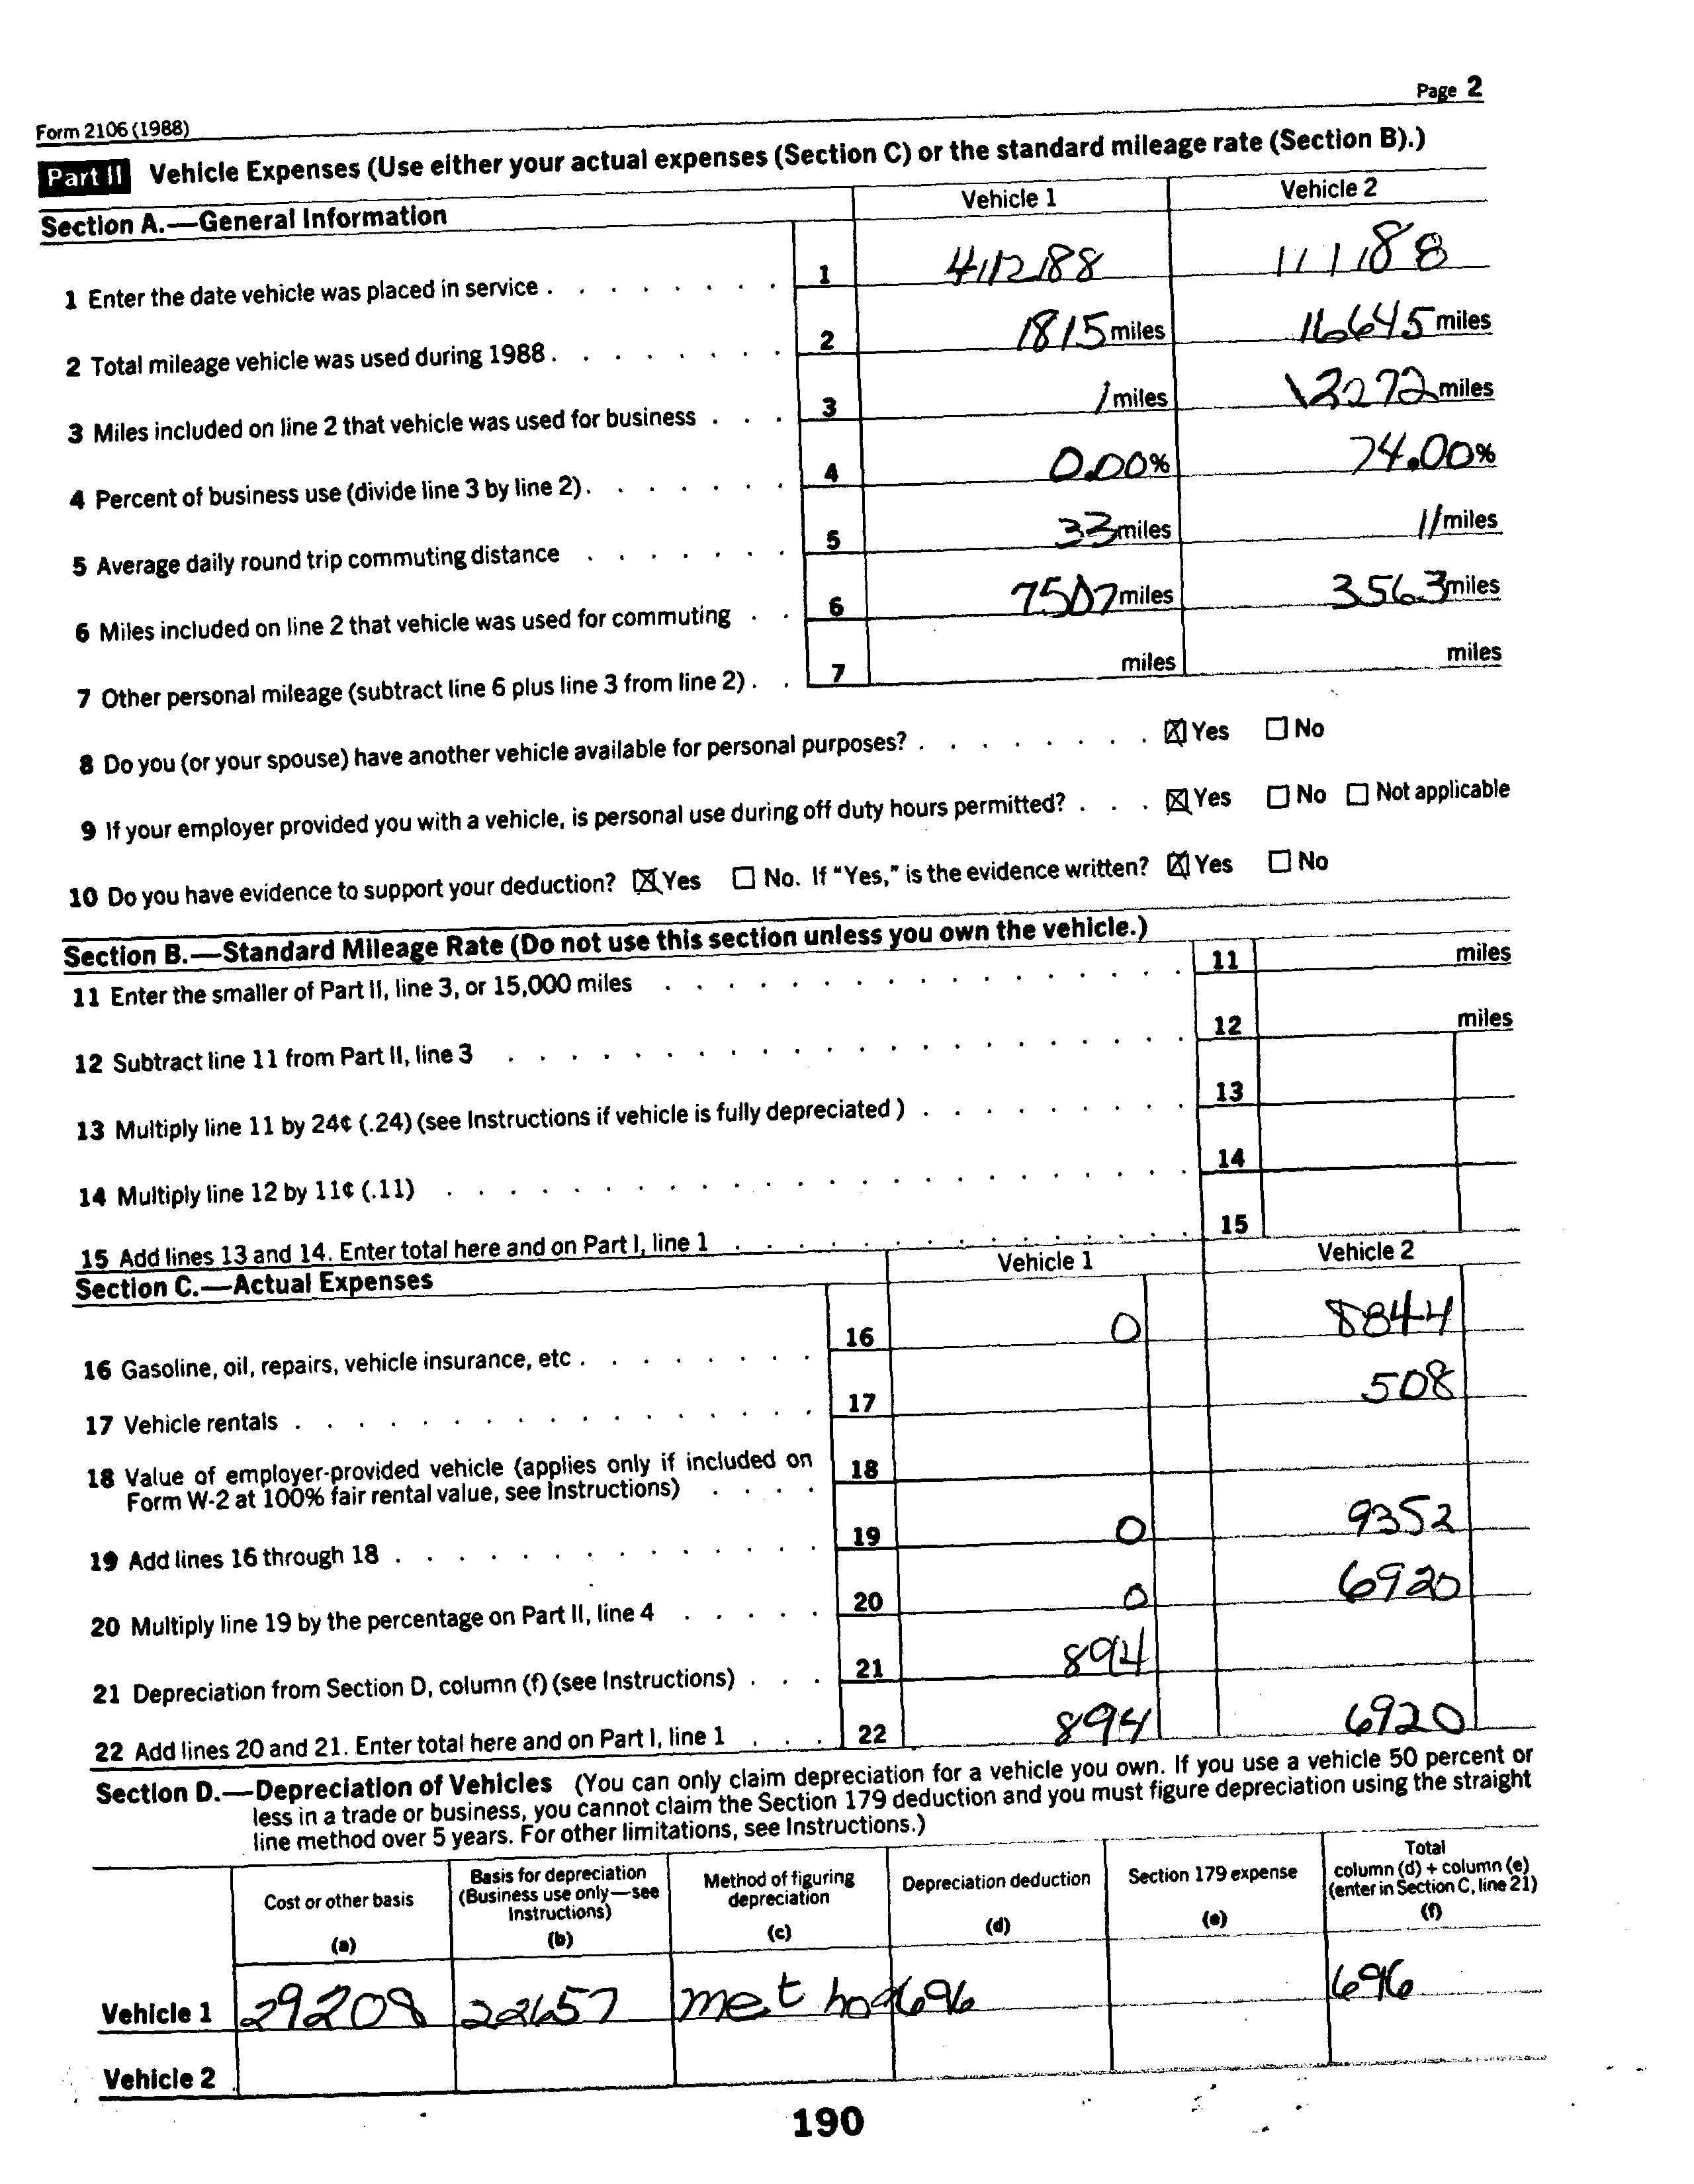 Page 2
Form 2106 (1988)
Part II Vehicle Expenses (Use either your actual expenses (Section C) or the standard mileage rate (Section B).)
Section A.—General Information Vehicle 1 Vehicle 2
1 Enter the date vehicle was placed in service . . . . . . . . 1 4/12/88 1/1/88
2 Total mileage vehicle was used during 1988 . . . . . . . . 2 1815 miles 16645 miles
3 Miles included on line 2 that vehicle was used for business . . . 3 1 miles 12272 miles
4 Percent of business use (divide line 3 by line 2) . . . . . . . 4 0.00% 74.00%
5 Average daily round trip commuting distance . . . . . . . 5 33 miles 11 miles
6 Miles included on line 2 that vehicle was used for commuting . . 6 7507 miles 3563 miles
7 Other personal mileage (subtract line 6 plus line 3 from line 2) . . 7 miles miles
8 Do you (or your spouse) have another vehicle available for personal purposes? . . . . . . . . ☒ Yes ☐ No
9 If your employer provided you with a vehicle, is personal use during off duty hours permitted? . . . ☒ Yes ☐ No ☐ Not applicable
10 Do you have evidence to support your deduction? ☒ Yes ☐ No. If "Yes," is the evidence written? ☒ Yes ☐ No
Section B.—Standard Mileage Rate (Do not use this section unless you own the vehicle.)
11 Enter the smaller of Part II, line 3, or 15,000 miles . . . . . . . . . . . . . . . . . 11 miles
12 Subtract line 11 from Part II, line 3 . . . . . . . . . . . . . . . . . . . . . . 12 miles
13 Multiply line 11 by 24¢ (.24) (see Instructions if vehicle is fully depreciated ) . . . . . . . . . 13
14 Multiply line 12 by 11¢ (.11) . . . . . . . . . . . . . . . . . . . . . . . . 14
15 Add lines 13 and 14. Enter total here and on Part I, line 1 . . . . . . . . . . . . . . . 15
Section C.—Actual Expenses Vehicle 1 Vehicle 2
16 Gasoline, oil, repairs, vehicle insurance, etc . . . . . . . . 16 0 8844
17 Vehicle rentals . . . . . . . . . . . . . . . . . 17 508
18 Value of employer-provided vehicle (applies only if included on 18
Form W-2 at 100% fair rental value, see Instructions) . . . .
19 Add lines 16 through 18 . . . . . . . . . . . . . . 19 0 9352
20 Multiply line 19 by the percentage on Part II, line 4 . . . . . 20 0 6920
21 Depreciation from Section D, column (f) (see Instructions) . . . 21 894
22 Add lines 20 and 21. Enter total here and on Part I, line 1 . . . 22 894 6920
Section D.—Depreciation of Vehicles (You can only claim depreciation for a vehicle you own. If you use a vehicle 50 percent or
less in a trade or business, you cannot claim the Section 179 deduction and you must figure depreciation using the straight
line method over 5 years. For other limitations, see Instructions.)
Cost or other basis (a) Basis for depreciation (Business use only—see Instructions) (b) Method of figuring depreciation (c) Depreciation deduction (d) Section 179 expense (e) Total column (d) + column (e) (enter in Section C, line 21) (f)
Vehicle 1 29208 22657 method 696 696
Vehicle 2
190